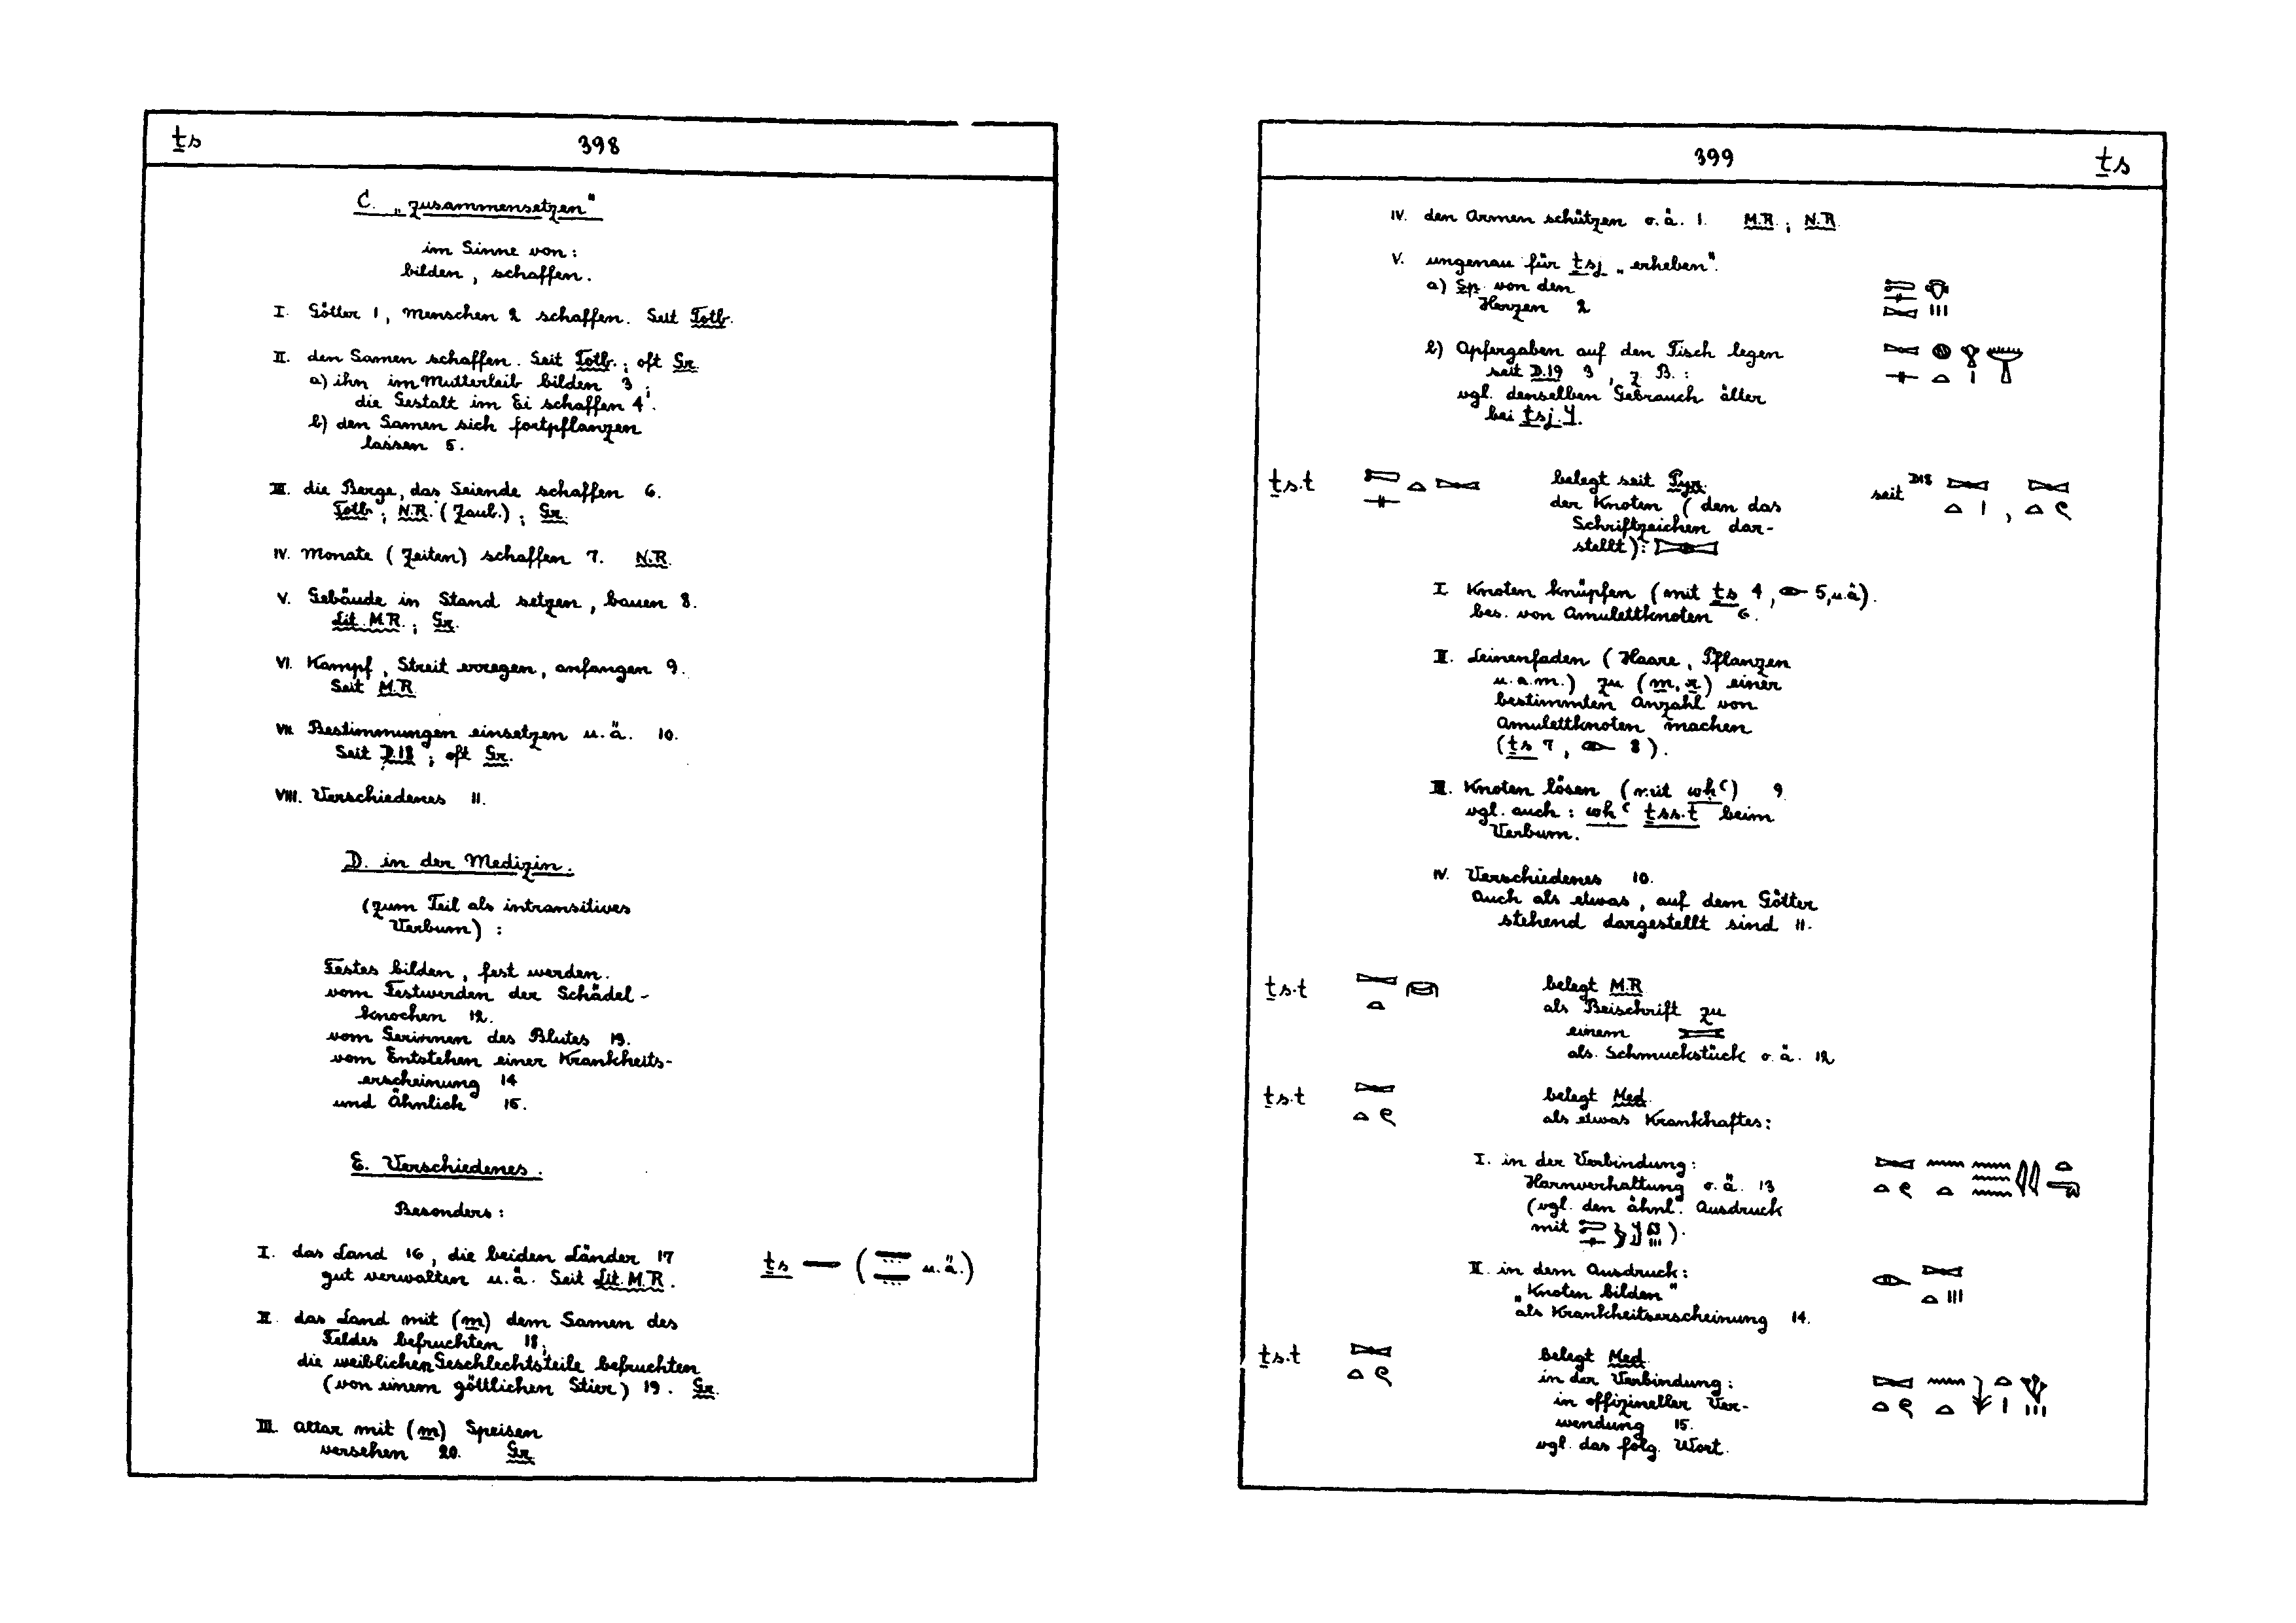 ṯs 398
C. „zusammensetzen"
im Sinne von:
bilden, schaffen.
I. Götter 1, Menschen 2 schaffen. Seit Totb.
II. den Samen schaffen. Seit Totb.; oft Gr.
a) ihn im Mutterleib bilden 3;
die Gestalt im Ei schaffen 4.
b) den Samen sich fortpflanzen
lassen 5.
III. die Berge, das Seiende schaffen 6.
Totb.; N.R. (Zaub.); Gr.
IV. Monate (Zeiten) schaffen 7. N.R.
V. Gebäude in Stand setzen, bauen 8.
Lit. M.R.; Gr.
VI. Kampf, Streit erregen, anfangen 9.
Seit M.R.
VII. Bestimmungen einsetzen u.ä. 10.
Seit D.18; oft Gr.
VIII. Verschiedenes 11.
D. in der Medizin.
(zum Teil als intransitives
Verbum):
Festes bilden, fest werden.
vom Festwerden der Schädel-
knochen 12.
vom Gerinnen des Blutes 13.
vom Entstehen einer Krankheits-
erscheinung 14
und Ähnlich 15.
E. Verschiedenes.
Besonders:
I. das Land 16, die beiden Länder 17 ṯs ( u.ä.)
gut verwalten u.ä. Seit Lit. M.R.
II. das Land mit (m) dem Samen des
Feldes befruchten 18;
die weiblichen Geschlechtsteile befruchten
(von einem göttlichen Stier) 19. Gr.
III. Altar mit (m) Speisen
versehen 20. Gr.
399 ṯs
IV. den Armen schützen o.ä. 1. M.R.; N.R.
V. ungenau für ṯsj „erheben".
a) Sp. von den
Herzen 2
b) Opfergaben auf den Tisch legen
seit D.19 3, z.B.:
vgl. denselben Gebrauch älter
bei ṯsj.
ṯs.t belegt seit Pyr. seit D18
der Knoten (den das
Schriftzeichen dar-
stellt):
I. Knoten knüpfen (mit ṯs 4, 5, u.ä).
bes. von Amulettknoten 6.
II. Leinenfaden (Haare, Pflanzen
u.a.m.) zu (m, r) einer
bestimmten Anzahl von
Amulettknoten machen
(ṯs 7, 8).
III. Knoten lösen (mit wḥʿ) 9
vgl. auch: wḥʿ ṯss.t beim
Verbum.
IV. Verschiedenes 10.
Auch als etwas, auf dem Götter
stehend dargestellt sind 11.
ṯs.t belegt M.R
als Beischrift zu
einem
als Schmuckstück o.ä. 12
ṯs.t belegt Med.
als etwas Krankhaftes:
I. in der Verbindung:
Harnverhaltung o.ä. 13
(vgl. den ähnl. Ausdruck
mit ).
II. in dem Ausdruck:
„Knoten bilden"
als Krankheitserscheinung 14.
ṯs.t belegt Med.
in der Verbindung:
in offizineller Ver-
wendung 15.
vgl. das folg. Wort.